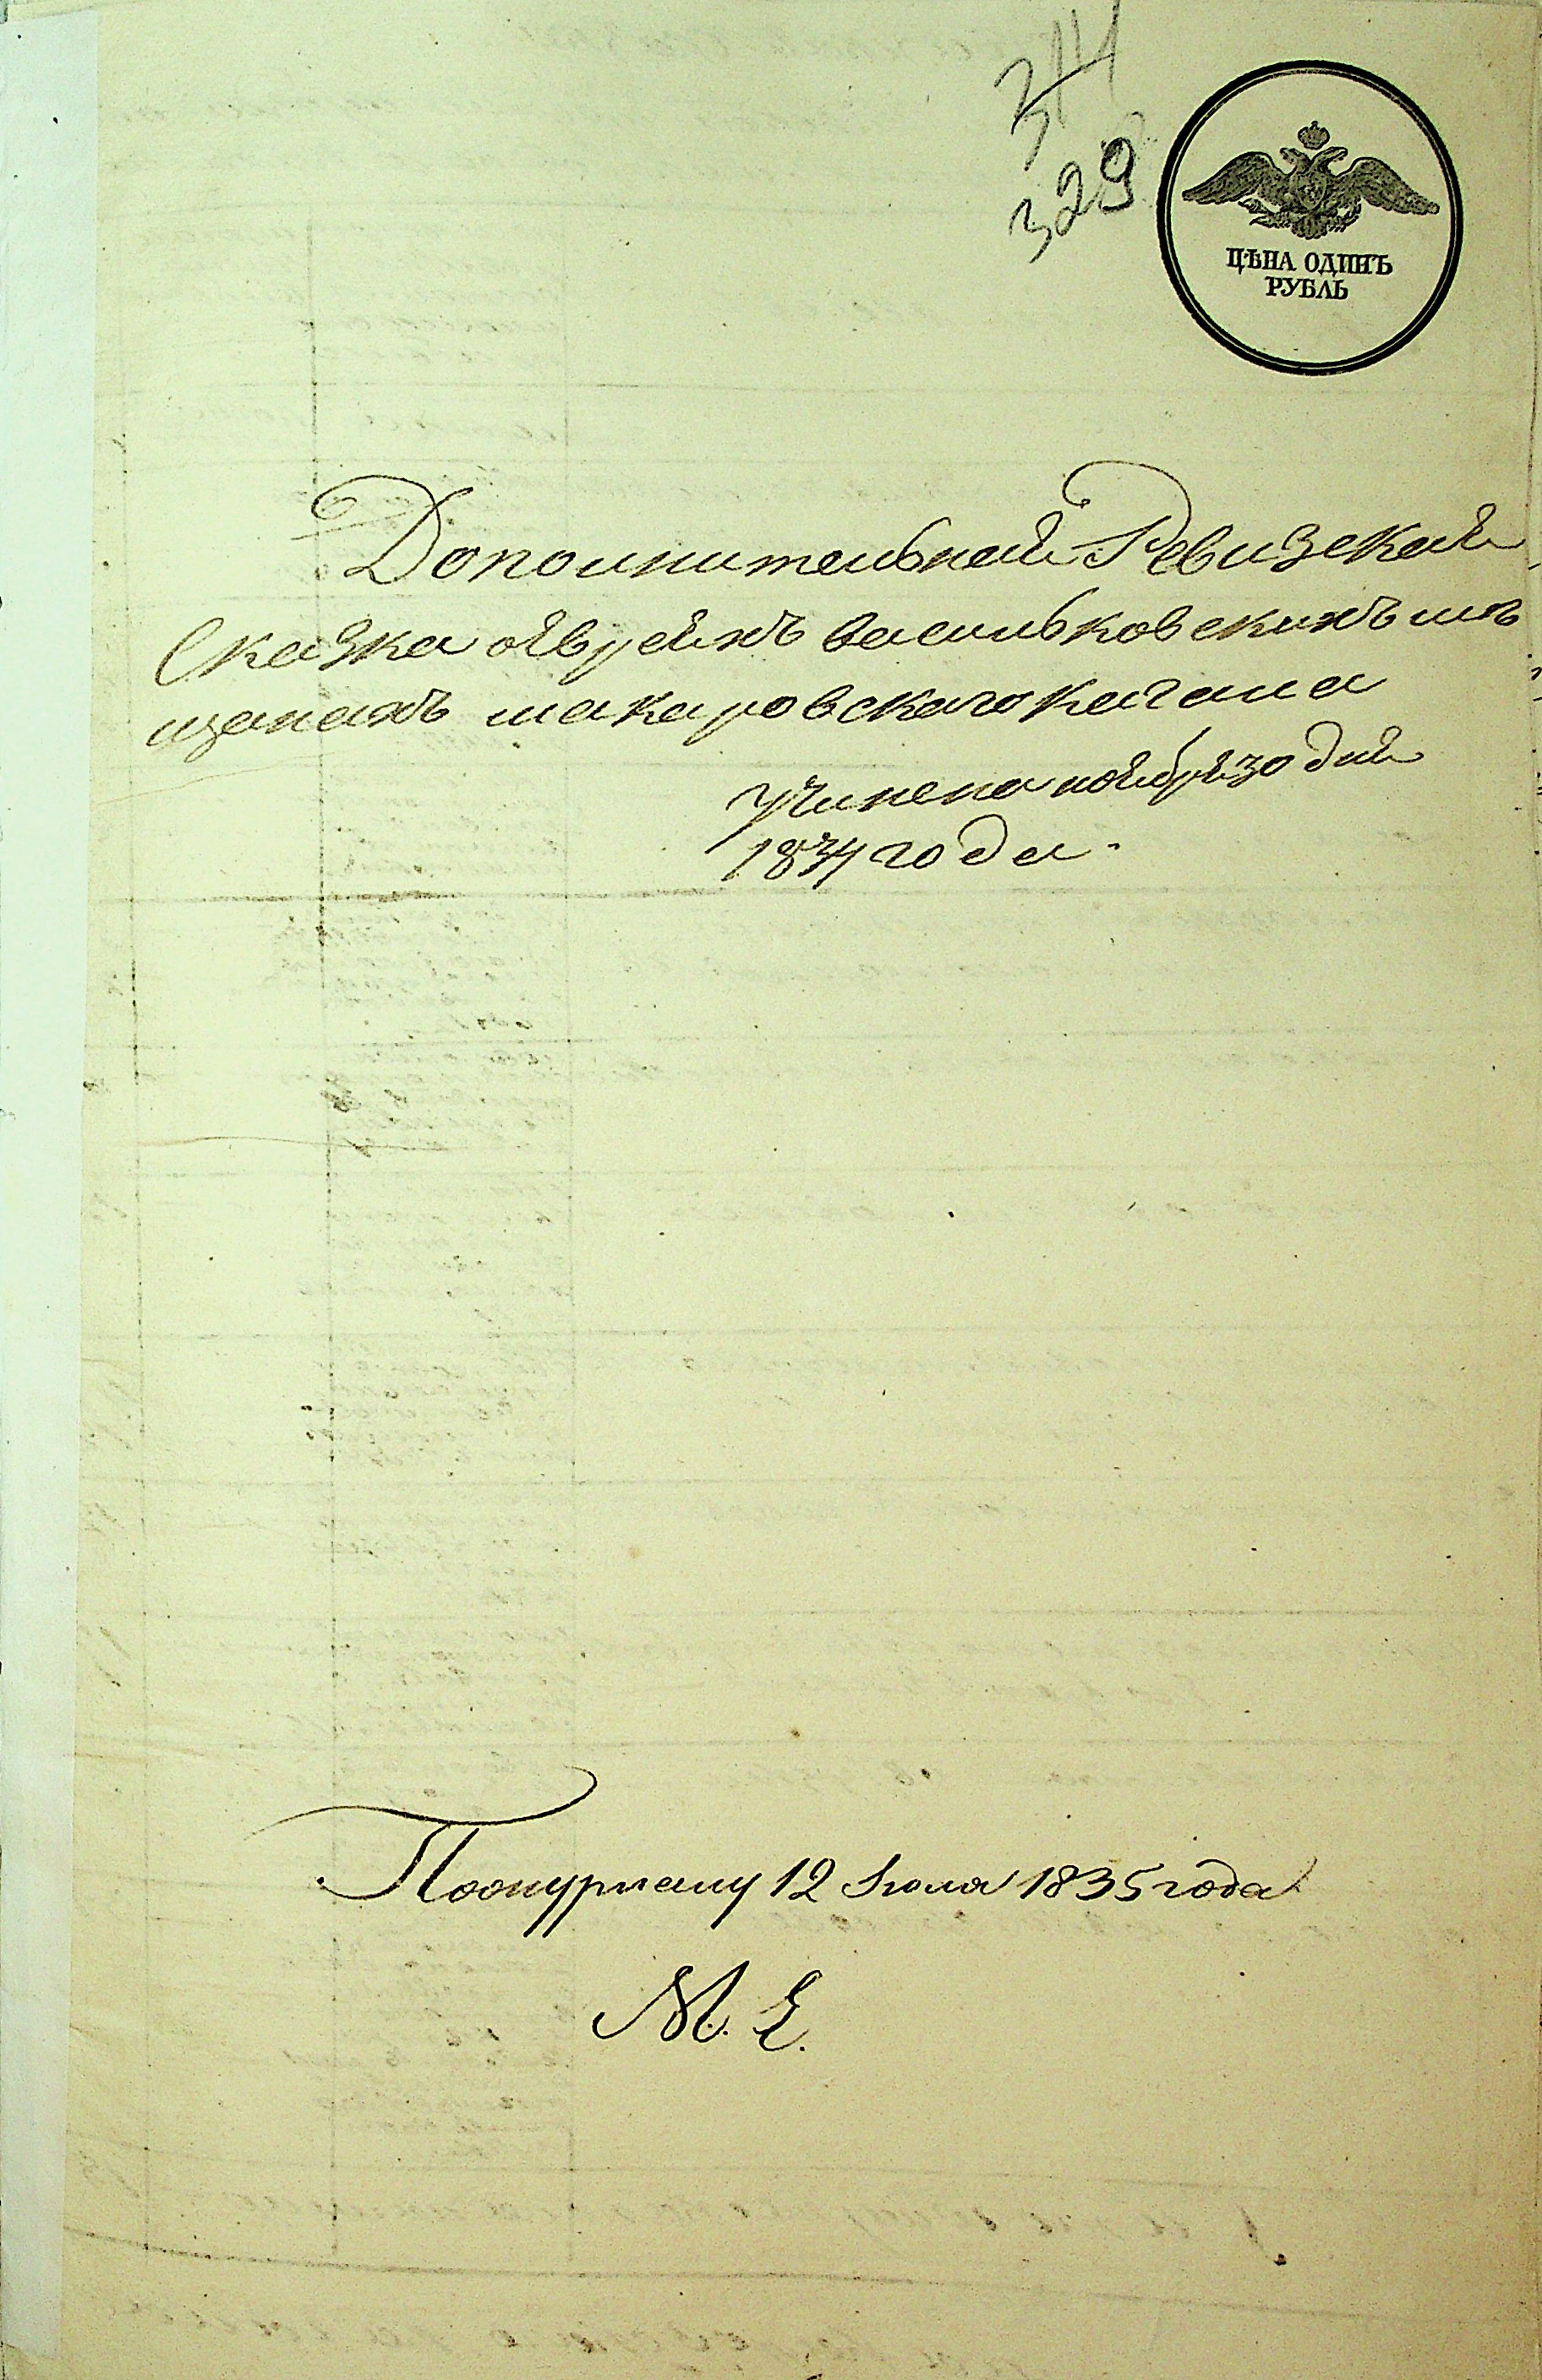 314
329
ЦѢНА ОДИНЪ
РУБЛЬ
Дополнительная Ревизская
Сказка о Евреяхъ васильковскихъ мѣ
щанахъ макаровского кагала
Учинена ноября 30 дня
1834 года.
По журналу 12 Июля 1835 года
№. 2.